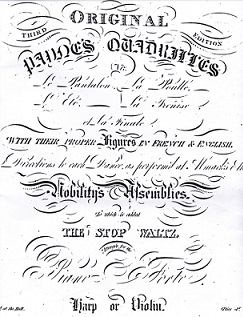 THIRD ORIGINAL EDITION
QUADRILLES
Le Pantalon La Poule
L'Eté La Trenise
et La Finale
WITH THEIR PROPER Figures IN FRENCH & ENGLISH,
Directions to each Dance, as perform'd at Almack's &
Nobility's Assemblies.
To which is added
THE STOP WALTZ.
for the
Piano Forte
Harp or Violin.
at the Hall.